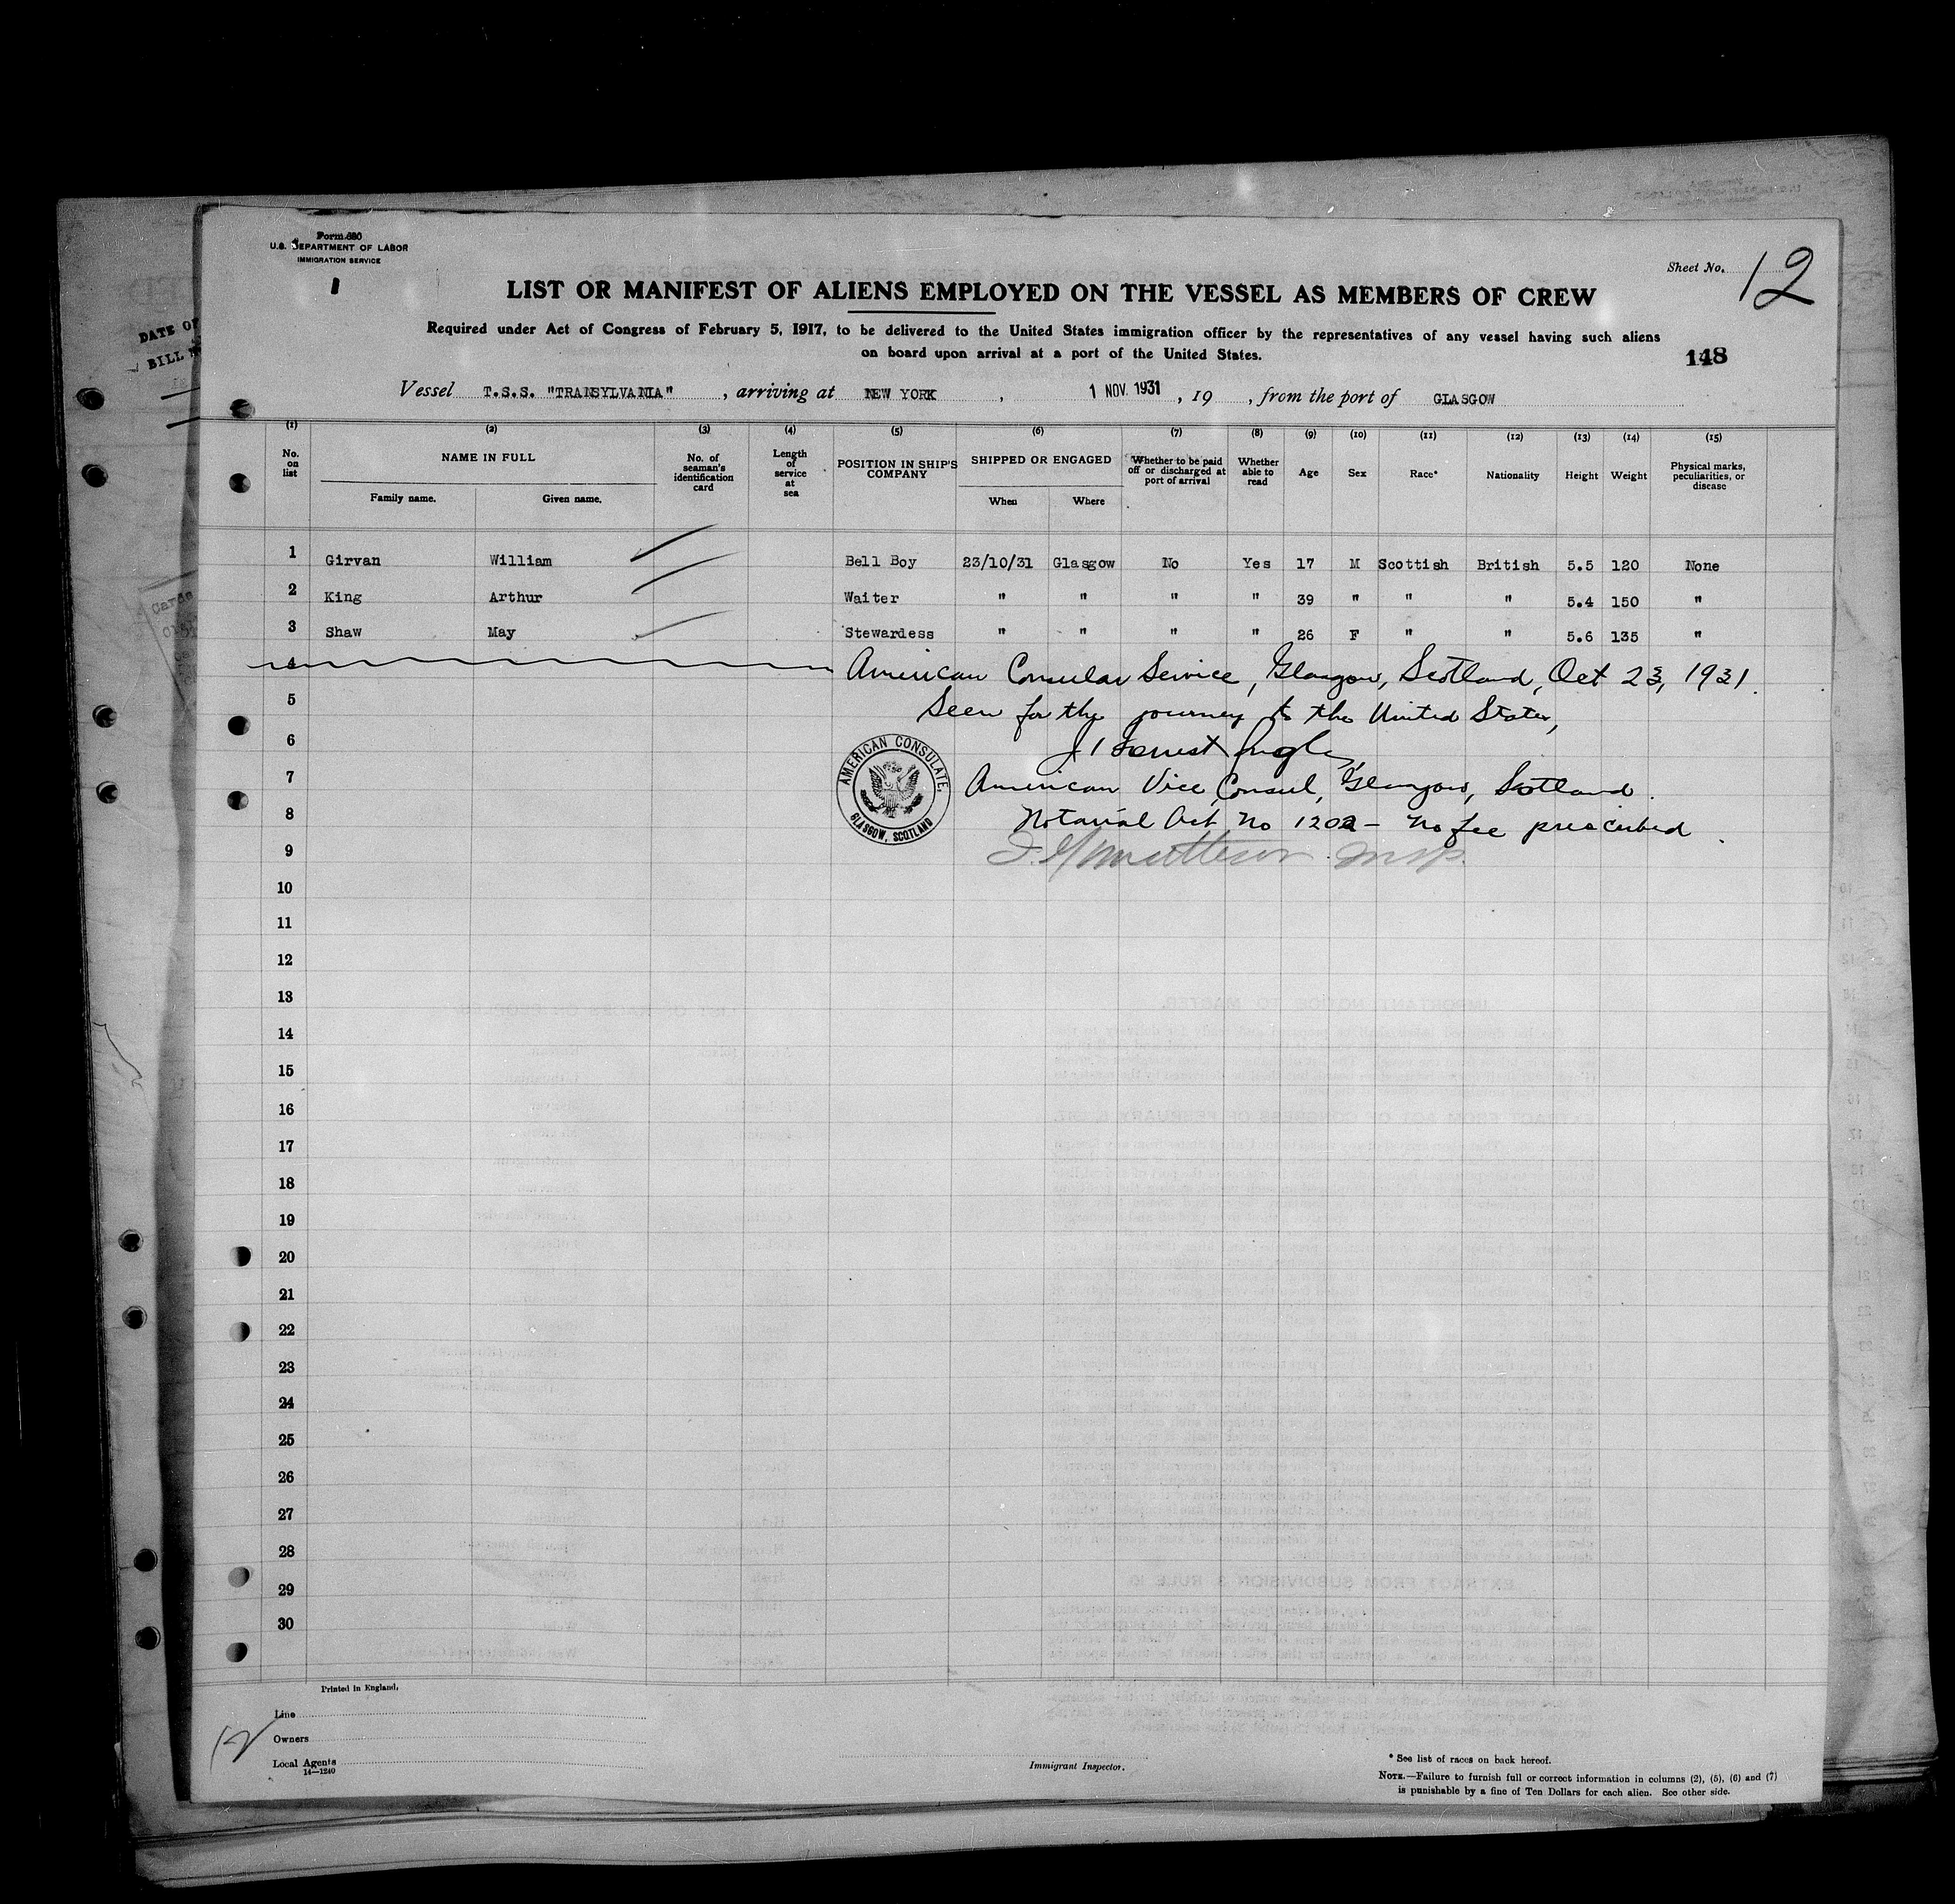 Form 680
U.S. DEPARTMENT OF LABOR
IMMIGRATION SERVICE
1
Sheet No. 12
LIST OR MANIFEST OF ALIENS EMPLOYED ON THE VESSEL AS MEMBERS OF CREW
Required under Act of Congress of February 5, 1917, to be delivered to the United States immigration officer by the representatives of any vessel having such aliens
on board upon arrival at a port of the United States.
148
DATE OF
BILL
Vessel T.S.S. "TRANSYLVANIA" , arriving at NEW YORK , 1 NOV. 1931 , 19 , from the port of GLASGOW
(1) (2) (3) (4) (5) (6) (7) (8) (9) (10) (11) (12) (13) (14) (15)
No. on list NAME IN FULL Family name. Given name. No. of seaman's identification card Length of service at sea POSITION IN SHIP'S COMPANY SHIPPED OR ENGAGED When Where Whether to be paid off or discharged at port of arrival Whether able to read Age Sex Race* Nationality Height Weight Physical marks, peculiarities, or disease
1 Girvan William Bell Boy 23/10/31 Glasgow No Yes 17 M Scottish British 5.5 120 None
2 King Arthur Waiter " " " " 39 " " " 5.4 150 "
3 Shaw May Stewardess " " " " 26 F " " 5.6 135 "
4 American Consular Service, Glasgow, Scotland, Oct 23, 1931.
5 Seen for the journey to the United States,
6
AMERICAN CONSULATE
GLASGOW, SCOTLAND
7 American Vice Consul, Glasgow, Scotland.
8 Notarial Act No 1202 - No fee prescribed.
9
10
11
12
13
14
15
16
17
18
19
20
21
22
23
24
25
26
27
28
29
30
Printed in England.
Line
Owners
Local Agents
14—1240
12
Immigrant Inspector.
* See list of races on back hereof.
NOTE.—Failure to furnish full or correct information in columns (2), (5), (6) and (7)
is punishable by a fine of Ten Dollars for each alien. See other side.